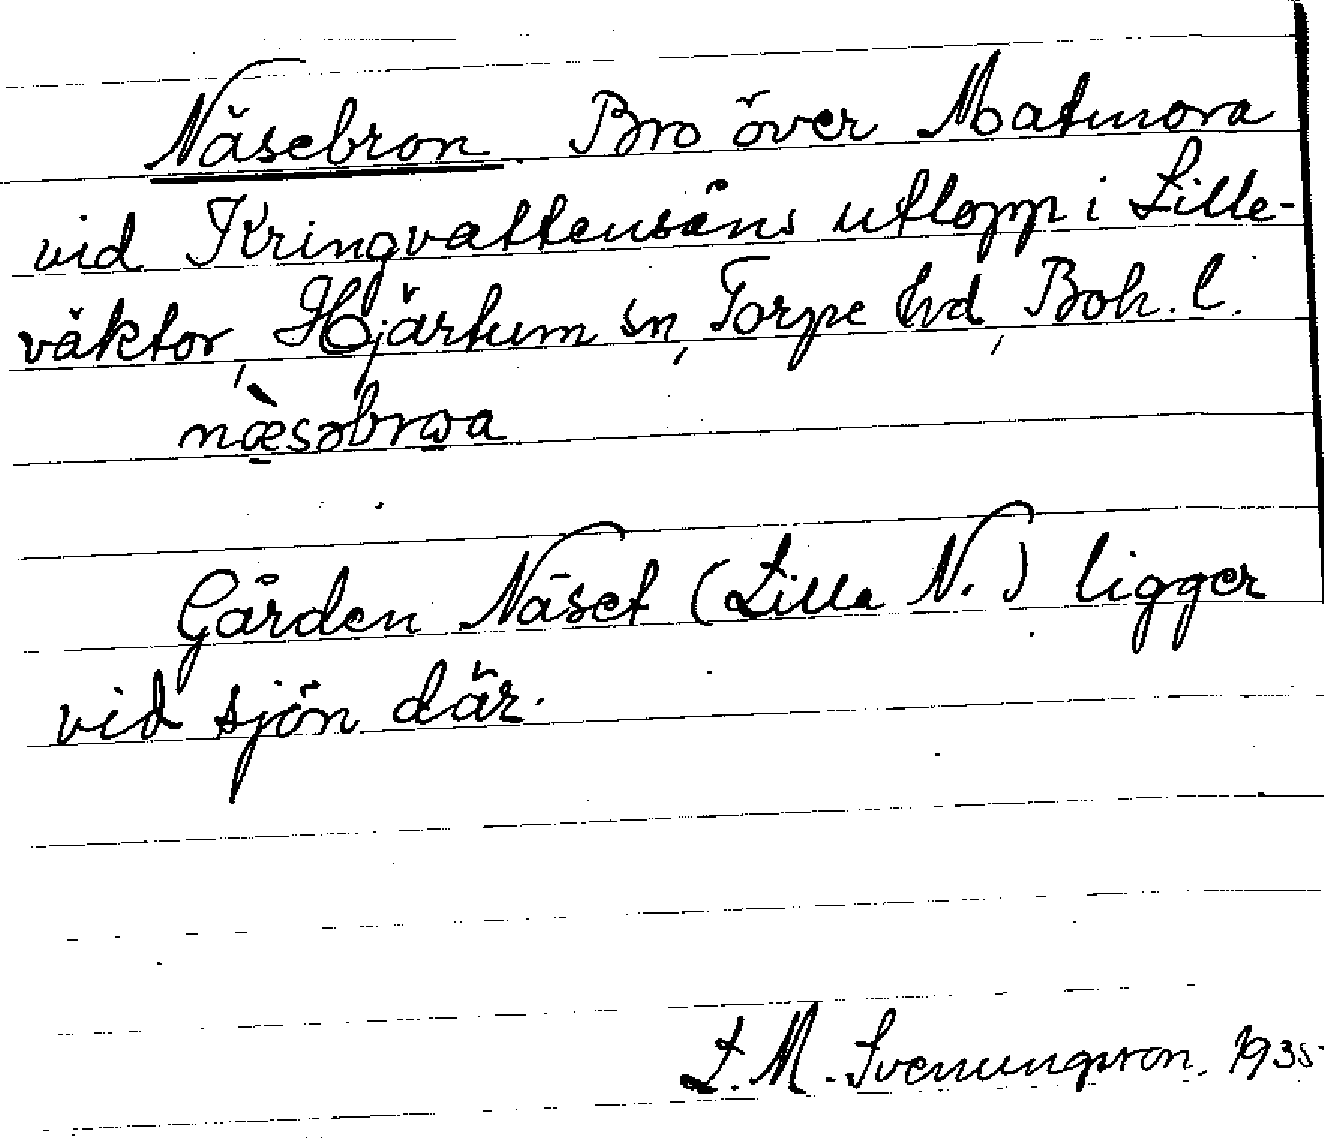 Näsebron. Bro över Matmora
vid Kringvattensåns utlopp i Lille-
väktor, Hjärtum sn, Torpe hd, Boh. l.
næ̀səbrωa
Gården Näset (Lilla N.) ligger
vid sjön där.
L. M. Svenungsson. 1935